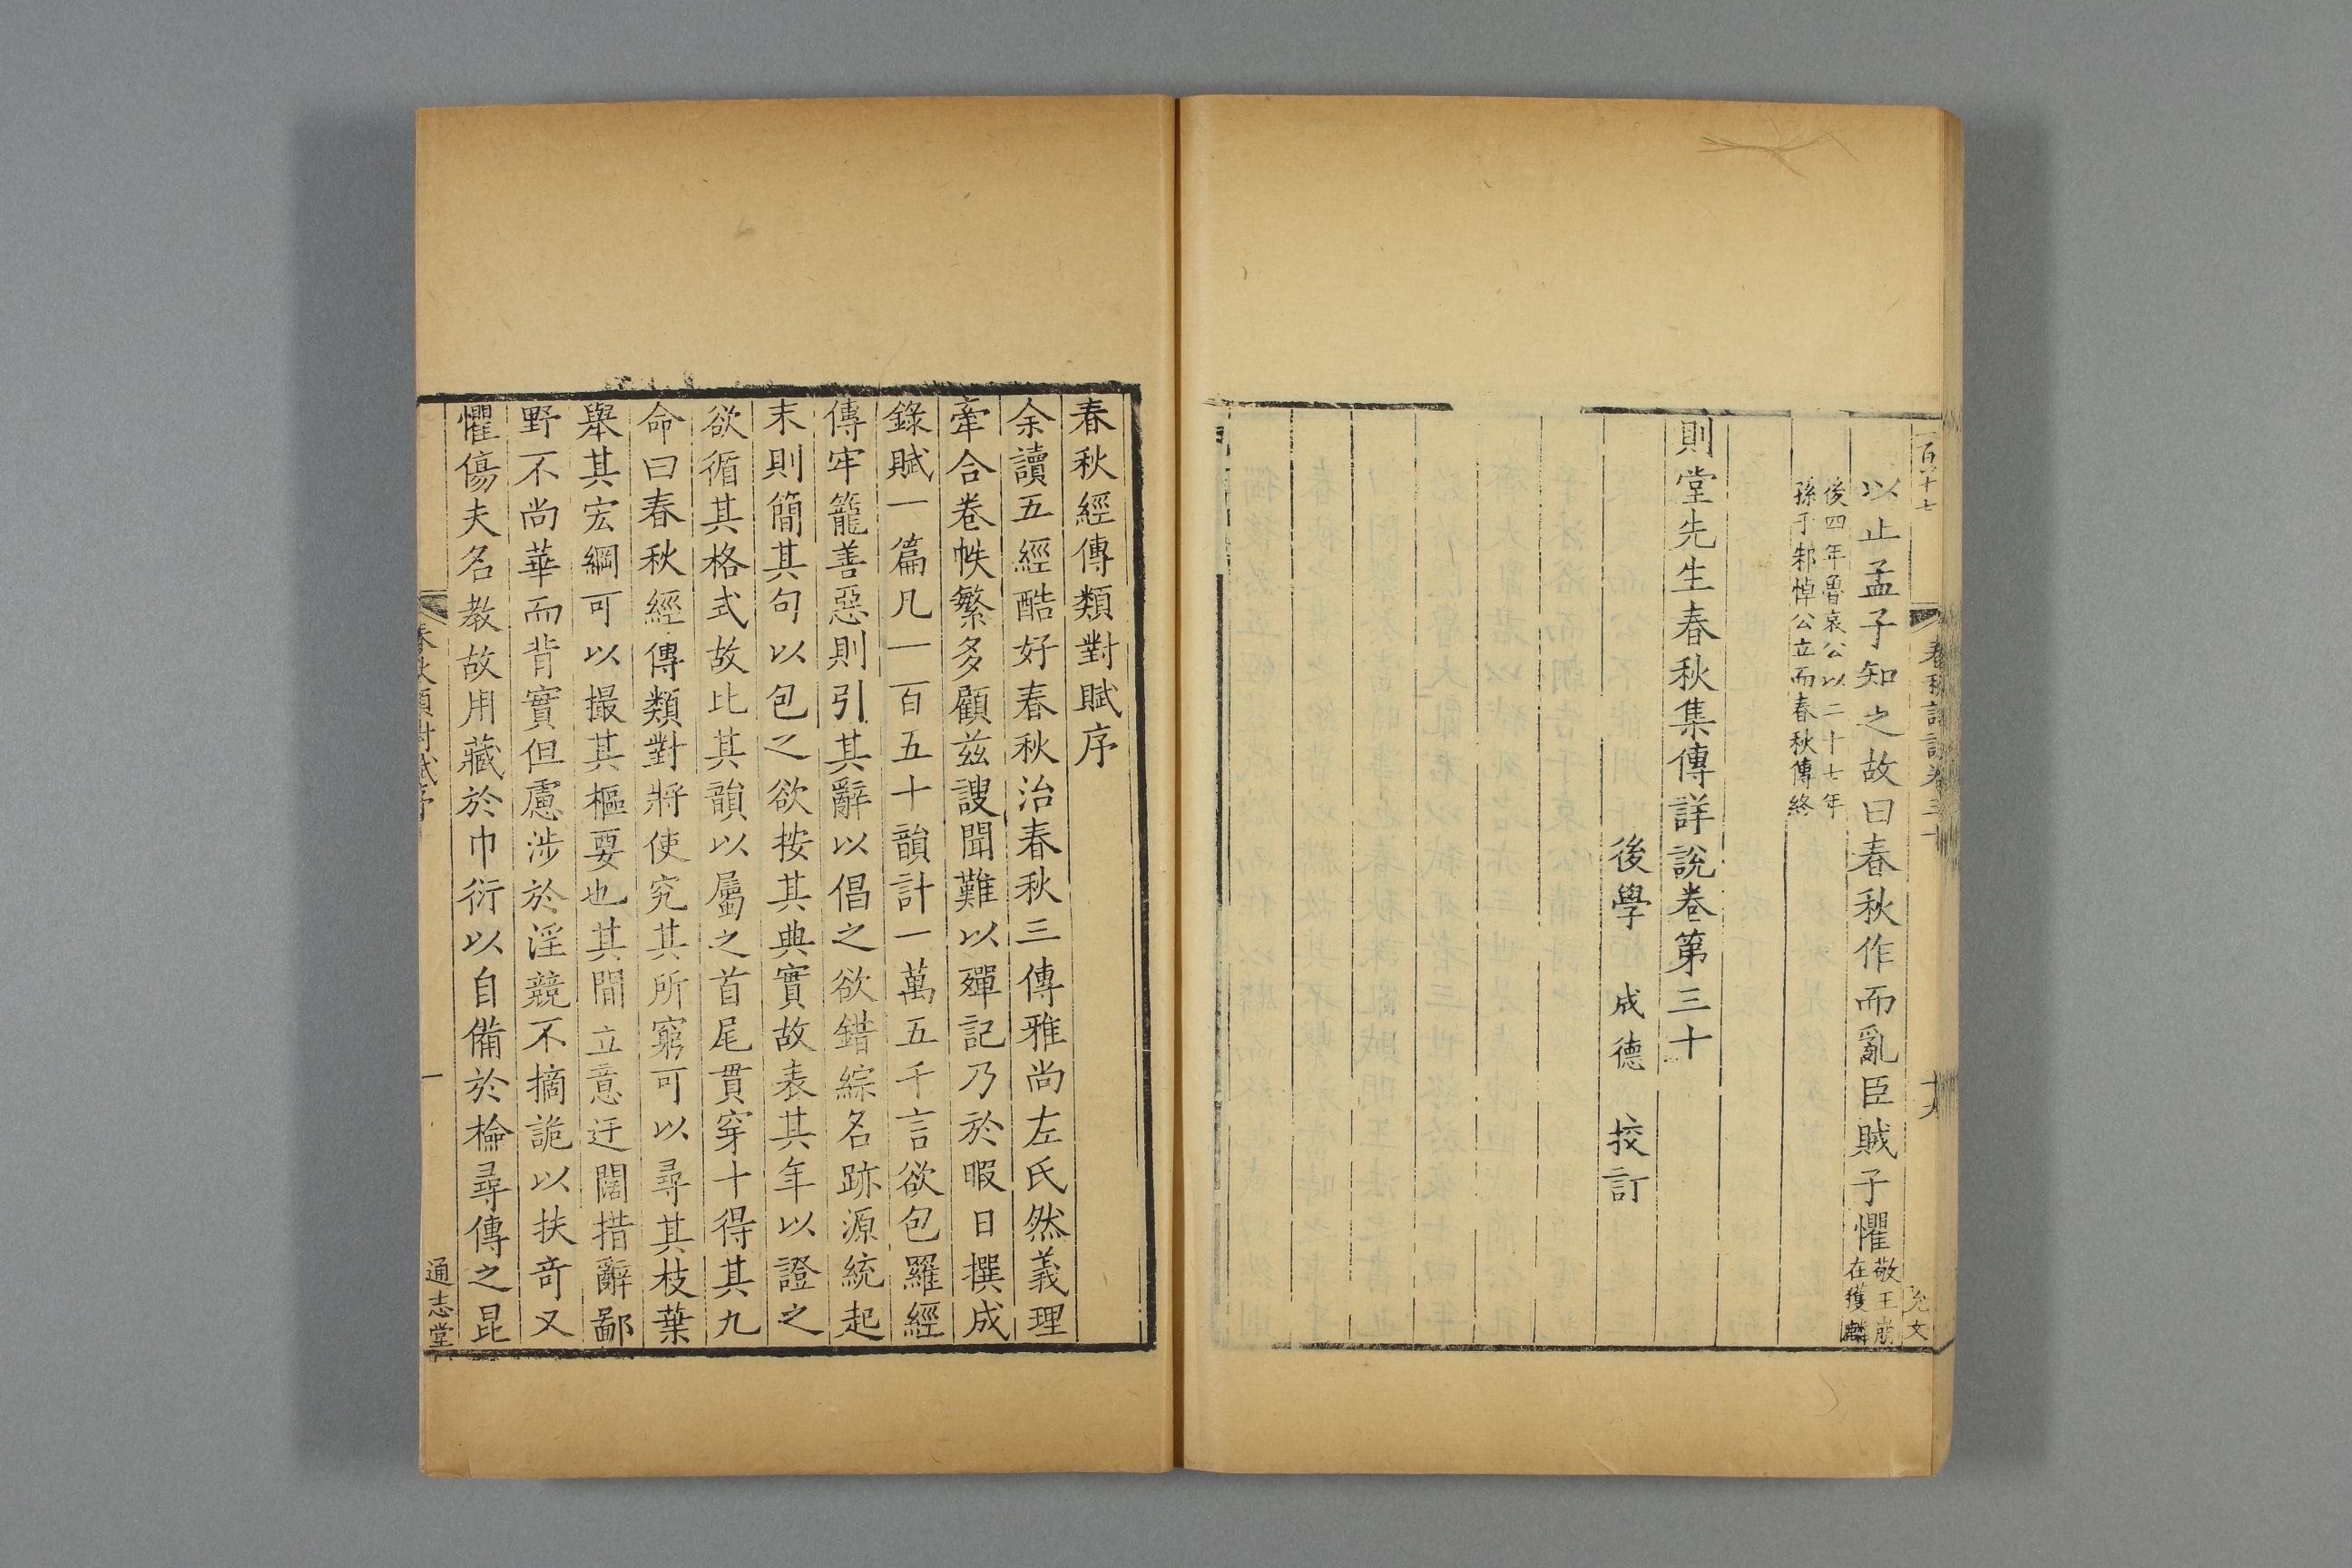 以止孟子知之故曰春秋作而亂臣賊子懼敬王崩在獲麟
後四年魯哀公以二十七年
孫于邾悼公立而春秋傳終
則堂先生春秋集傳詳說卷第三十
後學 成德 挍訂
春秋經傳類對賦序
余讀五經酷好春秋治春秋三傳雅尚左氏然義理
牽合卷帙繁多顧茲謏聞難以殫記乃於暇日撰成
錄賦一篇凡一百五十韻計一萬五千言欲包羅經
傳牢籠善惡則引其辭以倡之欲錯綜名跡源統起
末則簡其句以包之欲按其典實故表其年以證之
欲循其格式故比其韻以屬之首尾貫穿十得其九
命曰春秋經傳類對將使究其所窮可以尋其枝葉
舉其宏綱可以撮其樞要也其間立意迂闊措辭鄙
野不尚華而背實但慮涉於淫競不摘詭以扶奇又
懼傷夫名教故用藏於巾衍以自備於檢尋傳之昆
春秋類對賦序
一
通志堂